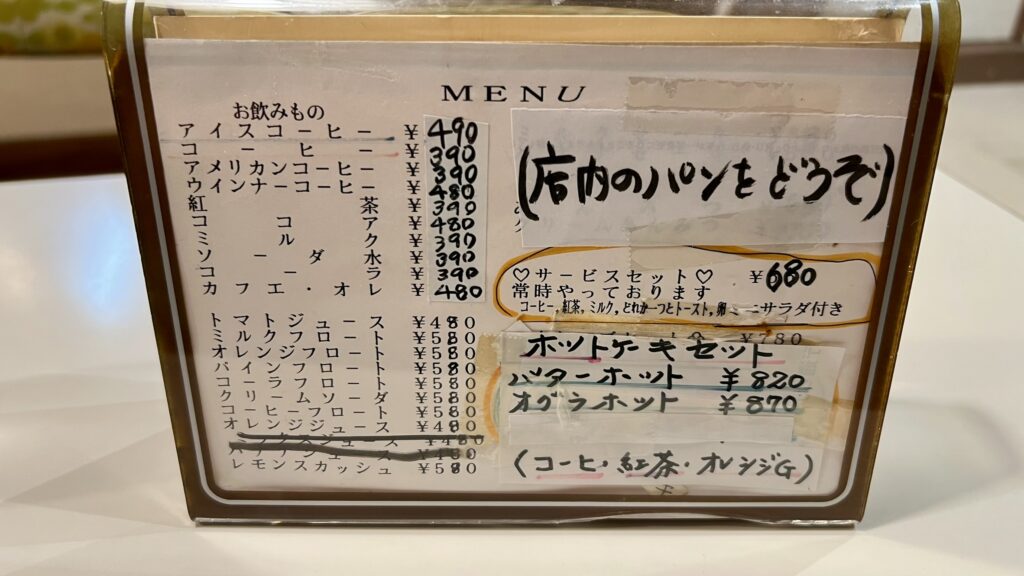 MENU
お飲みもの
アイスコーヒー ¥490
コーヒー ¥390
アメリカンコーヒー ¥390
ウインナーコーヒー ¥480
紅茶 ¥390
ココア ¥480
ミルク ¥390
ソーダ水 ¥390
コーラ ¥390
カフエ・オレ ¥480
トマトジュース ¥480
ミルクフロート ¥580
オレンジフロート ¥580
パインフロート ¥580
コーラフロート ¥580
クリームソーダ ¥580
コーヒーフロート ¥580
オレンジジュース ¥480
レモンスカッシュ ¥580
(店内のパンをどうぞ)
♡サービスセット♡ ¥680
常時やっております
コーヒー,紅茶,ミルク,どれか一つとトースト,卵ミニサラダ付き
¥780
ホットケーキセット
バターホット ¥820
オグラホット ¥870
(コーヒ・紅茶・オレンジG)